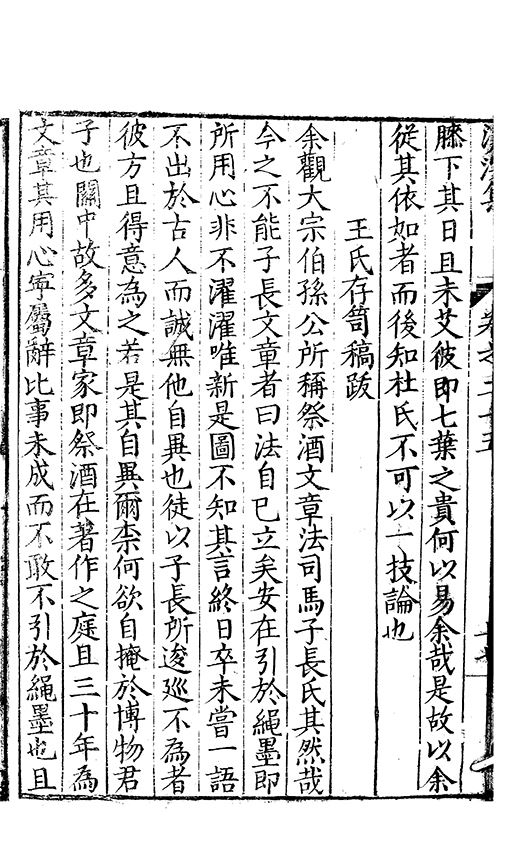 滄溟集 卷之二十五
膝下其日且未艾彼即七葉之貴何以易余哉是故以余
從其依如者而後知杜氏不可以一技論也
王氏存笥稿跋
余觀大宗伯孫公所稱祭酒文章法司馬子長氏其然哉
今之不能子長文章者曰法自己立矣安在引於繩墨即
所用心非不濯濯唯新是圖不知其言終日卒未嘗一語
不出於古人而誠無他自異也徒以子長所逡巡不為者
彼方且得意為之若是其自異爾柰何欲自掩於博物君
子也關中故多文章家即祭酒在著作之庭且三十年為
文章其用心寧屬辭比事未成而不敢不引於繩墨也且